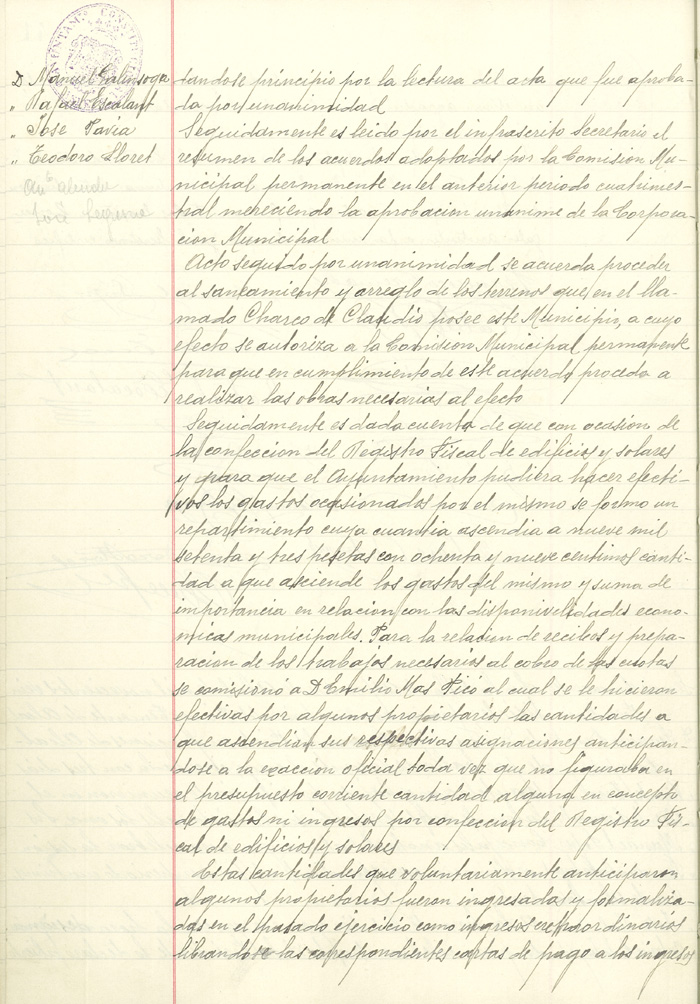 D Manuel Galinsoga
" Rafael Escalant
" José Pavia
" Teodoro Lloret
dandose principio por la lectura del acta que fue aproba-
da por unanimidad
Seguidamente es leido por el infrascrito Secretario el
resumen de los acuerdos adoptados por la Comision Mu-
nicipal permanente en el anterior periodo cuatrimes-
tral mereciendo la aprobacion unanime de la Corpora-
cion Municipal
Acto seguido por unanimidad se acuerda proceder
al saneamiento y arreglo de los terrenos que en el lla-
mado Charco de Claudio posee este Municipio, a cuyo
efecto se autoriza a la Comision Municipal permanente
para que en cumplimiento de este acuerdo proceda a
realizar las obras necesarias al efecto
Seguidamente es dada cuenta de que con ocasion de
la confeccion del Registro Fiscal de edificios y solares
y para que el Ayuntamiento pudiera hacer efecti-
vos los gastos ocasionados por el mismo se formo un
repartimiento cuya cuantia ascendia a nueve mil
setenta y tres pesetas con ochenta y nueve centimos canti-
dad a que asciende los gastos del mismo y suma de
importancia en relacion con las disponivilidades econo-
micas municipales. Para la relacion de recibos y prepa-
racion de los trabajos necesarios al cobro de las cuotas
se comisionó a D Emilio Mas Picó al cual se le hicieron
efectivas por algunos propietarios las cantidades a
que ascendian sus respectivas asignaciones anticipan-
dose a la exaccion oficial toda vez que no figuraba en
el presupuesto corriente cantidad alguna en concepto
de gastos ni ingresos por confeccion del Registro Fis-
cal de edificios y solares
Estas cantidades que voluntariamente anticiparon
algunos propietarios fueron ingresadas y formaliza-
das en el pasado ejercicio como ingresos extraordinarios
librandose las correspondientes cartas de pago a los ingresos